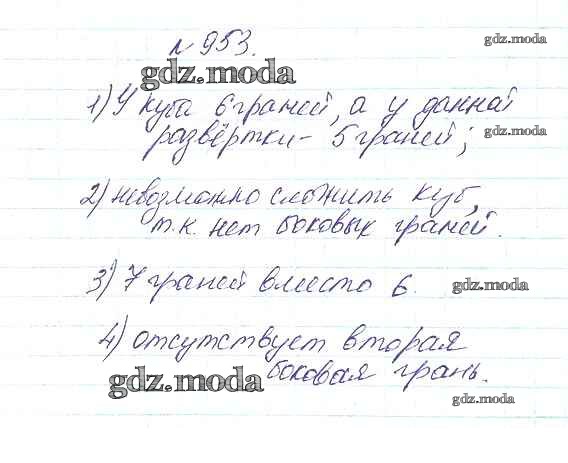 № 953.
gdz.moda
gdz.moda
1) У куба 6 граней, а у данной
развёртки - 5 граней;
gdz.moda
gdz.moda
2) невозможно сложить куб,
т.к. нет боковых граней.
3) 7 граней вместо 6.
gdz.moda
4) отсутствует вторая
боковая грань.
gdz.moda
gdz.moda